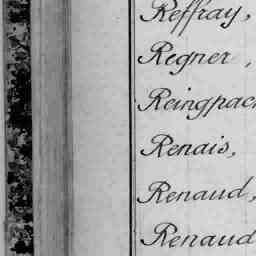 Reffray,
Regner,
Reingpac
Renais,
Renaud,
Renaud